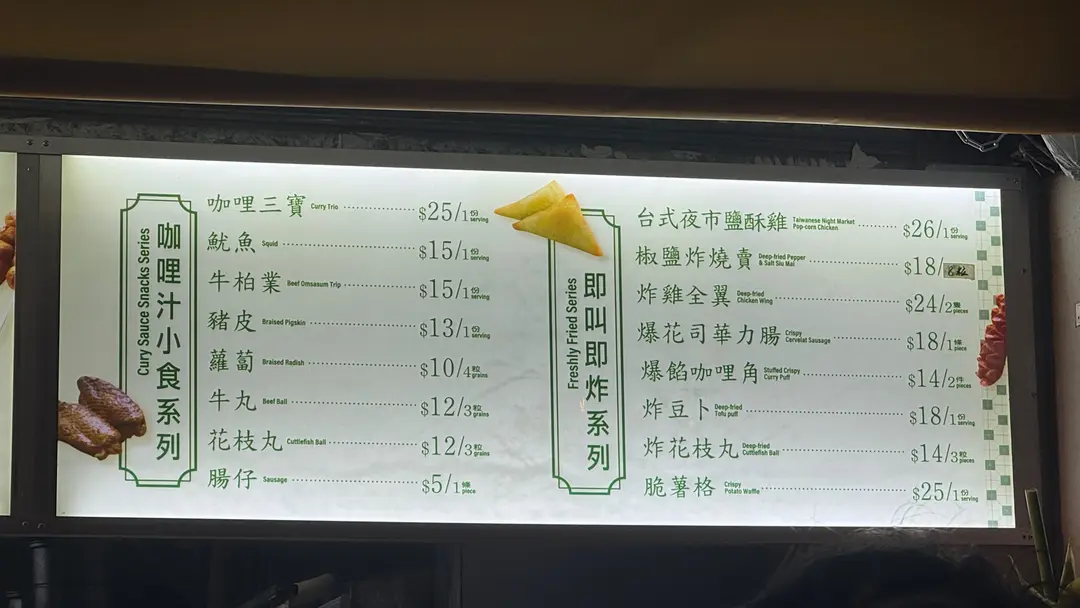 咖喱汁小食系列
Cury Sauce Snacks Series
咖哩三寶 Curry Trio $25/1份 serving
魷魚 Squid $15/1份 serving
牛柏業 Beef Omsasum Trip $15/1份 serving
豬皮 Braised Pigskin $13/1份 serving
蘿蔔 Braised Radish $10/4粒 grains
牛丸 Beef Ball $12/3粒 grains
花枝丸 Cuttlefish Ball $12/3粒 grains
腸仔 Sausage $5/1條 piece
即叫即炸系列
Freshly Fried Series
台式夜市鹽酥雞 Taiwanese Night Market Pop-corn Chicken $26/1份 serving
椒鹽炸燒賣 Deep-fried Pepper & Salt Siu Mai $18/
炸雞全翼 Deep-fried Chicken Wing $24/2隻 pieces
爆花司華力腸 Crispy Cervelat Sausage $18/1條 piece
爆餡咖哩角 Stuffed Crispy Curry Puff $14/2件 pieces
炸豆卜 Deep-fried Tofu puff $18/1份 serving
炸花枝丸 Deep-fried Cuttlefish Ball $14/3粒 pieces
脆薯格 Crispy Potato Waffle $25/1份 serving